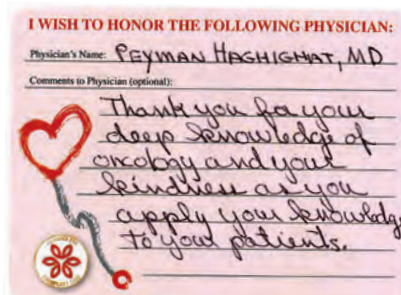 I WISH TO HONOR THE FOLLOWING PHYSICIAN:
Physician's Name: PEYMAN HAGHIGHAT, MD
Comments to Physician (optional):
Thank you for your
deep knowledge of
oncology and your
kindness as you
apply your knowledge
to your patients.